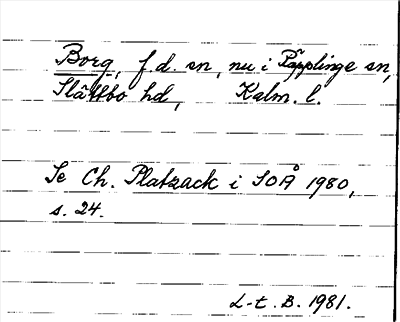 Borg, f.d. sn, nu i Räpplinge sn,
Slättbo hd, Kalm. l.
Se Ch. Platzack i SOÅ 1980,
s. 24.
L-t. B. 1981.